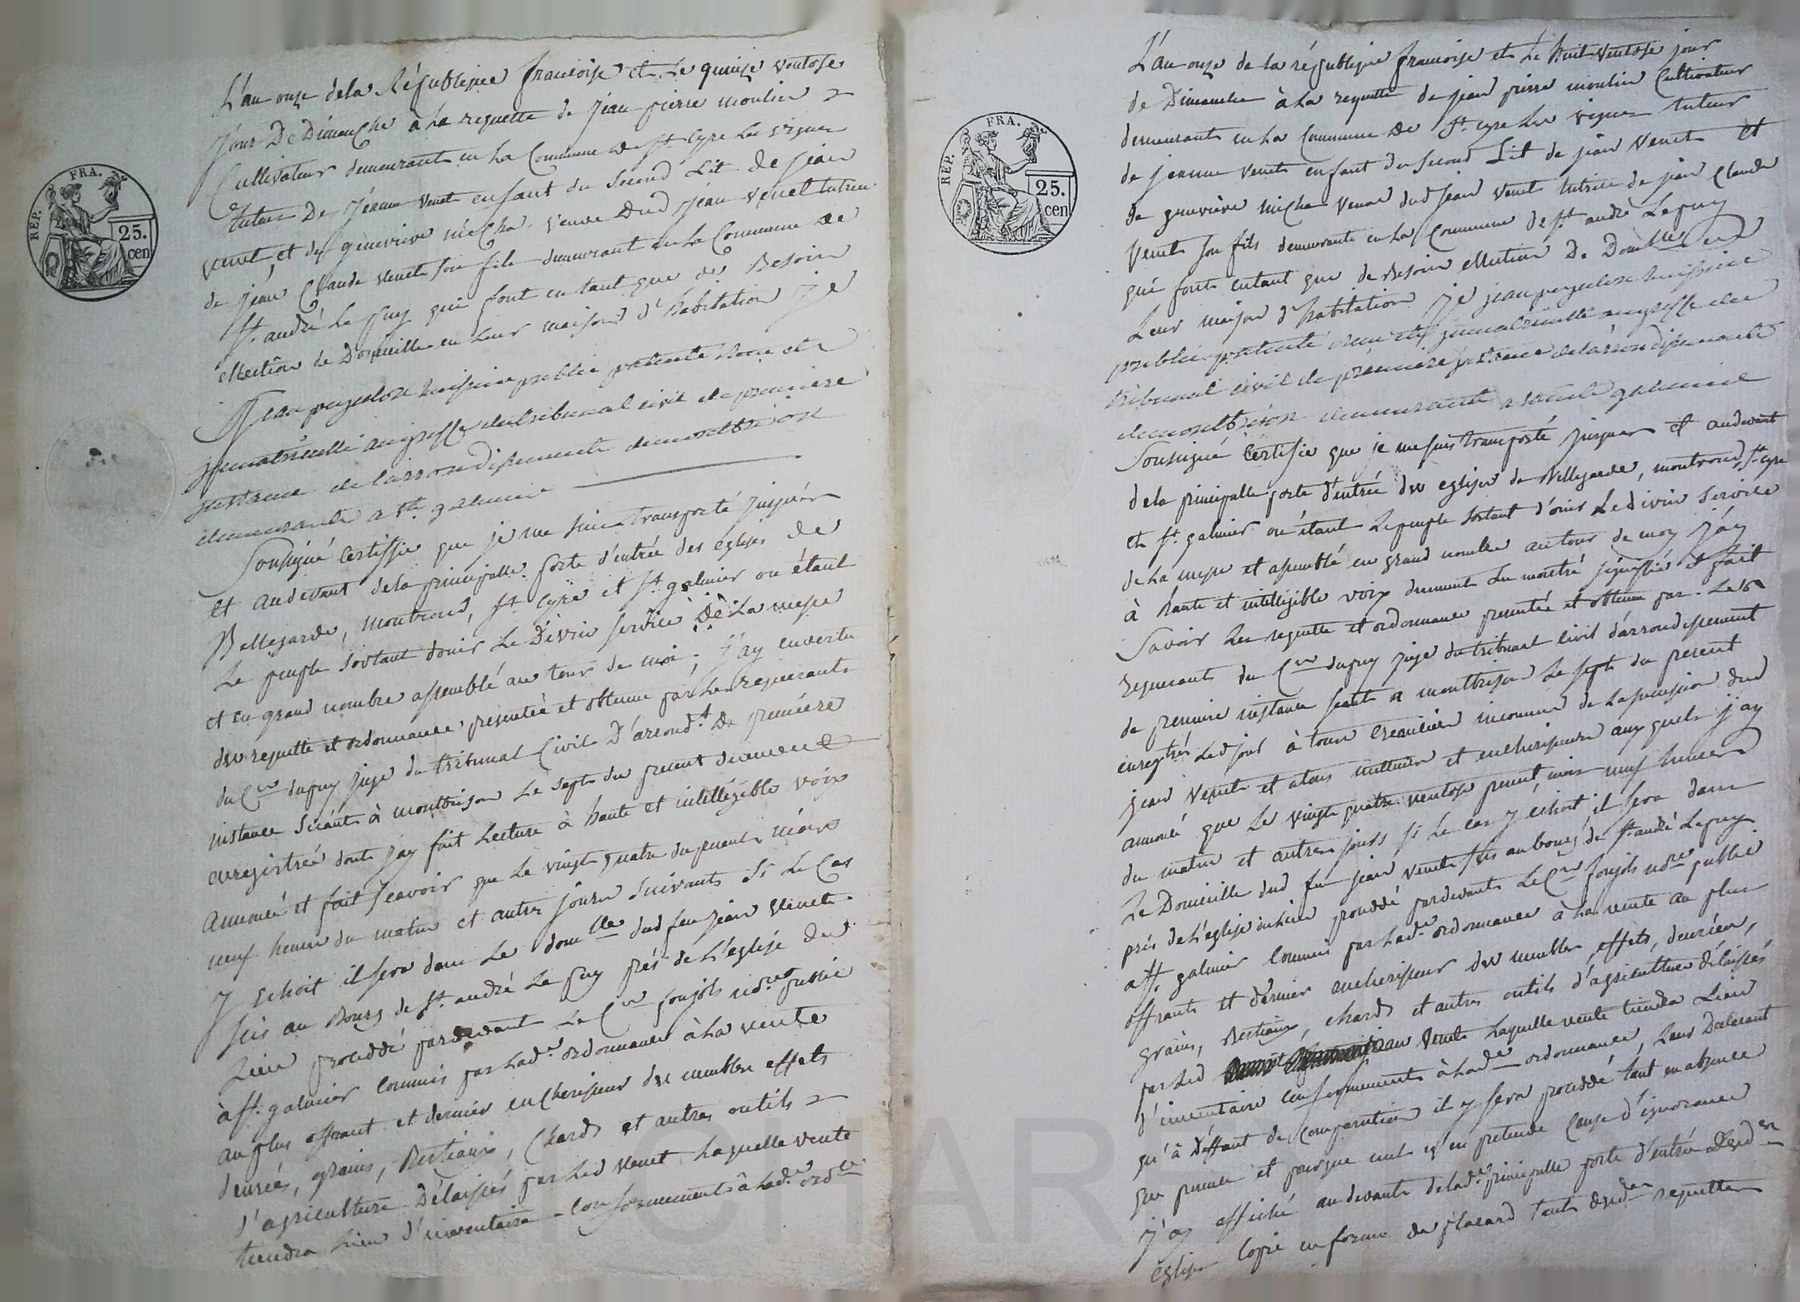 L'an onze de la République francoise et le quinze ventose
jour De Dimanche à la requette de jean pierre moulin
Cultivateur demeurant en la Commune de St Cyre les vignes
tuteur De jeanne venet enfant du second Lit de jean
venet et de genevieve micha veuve dud jean venet tutrice
de jean Claude venet son fils demeurant en la Commune de
St. andré le puy qui font en tant que de Besoin
ellection de Domicille en leur maison d'habitation je
jean huissier public patenté
immatriculé au greffe du tribunal civil de premiere
instance de l'arrondissement de montbrison
demeurant a St. galmier
soussigné Certiffie que je me suis transporté jusques
et audevant de la principalle porte d'entrée des eglises de
Bellegarde, montrond, St. Cyre et St. galmier ou étant
Le peuple sortant d'ouir Le Divin Service De La messe
et en grand nombre assemblé au tour de moi; j'ay en vertu
des requette et ordonnance presentée et obtenue par les requerants
du Cen dupuy juge du tribunal Civil D'arrondt. De première
instance séant à montbrison le sept du present
enregistrée dont j'ay fait Lecture à haute et intelligible voix
annoncé et fait scavoir que le vingt quatre du present mois
neuf heures du matin et autres jours suivants si Le Cas
y Echoit il sera dans Le domlle dud feu jean venet
sis au Bourg de St. andré le puy prés de L'eglise dud
Lieu procédé pardevant Le Cen poujols notre public
à St. galmier Commis par lade. ordonnance à La vente
au plus offrant et dernier encherisseur des meubles effets
denrées, grains, Bestiaux, Chards et autres outils
d'agriculture Délaissés par led venet Laquelle vente
tiendra Lieu d'inventaire Conformement à lade. ordce
REP. FRA.
25.
cen
L'an onze de la république francoise et le huit ventose jour
de Dimanche à la requette de jean pierre moulin Cultivateur
demeurant en la Commune De St. cyre les vignes tuteur
de jeanne venet enfant du second Lit de jean venet et
de genevieve micha veuve dud jean venet tutrice de jean Claude
venet son fils demeurante en la Commune de St. andré Le puy
qui font entant que de Besoin ellection De Domicille en
Leur maison d'habitation je jean huissier
public patenté immatriculé au greffe du
tribunal civil de première instance de l'arrondissement
de montbrison demeurant a Saint galmier
soussigné Certiffie que je me suis transporté jusques et audevant
de la principalle porte d'entrée des eglises de Bellegarde, montrond, St. cyre
et St. galmier ou étant Le peuple sortant d'ouir Le divin Service
de La messe et assemblé en grand nombre autour de moy j'ay
à haute et intelligible voix dument montré signiffié et fait
Savoir les requette et ordonnance presentée et obtenue par Les
requerants du Cen dupuy juge du tribunal Civil d'arrondissement
de premiere instance seant a montbrison Le sept du present
enregtrée Led jour à tous Creancier inconnus de La succession dud
jean venet et a tous metteurs et encherisseurs auxquels j'ay
annoncé que Le vingt quatre ventose present mois neuf heures
du matin et autres jours si Le Cas y échoit il sera dans
Le Domicille dud feu jean venet sis au bourg de St. andré Le puy
près de L'eglise du Lieu procédé pardevant Le Cen poujols notre public
à St. galmier Commis par lade. ordonnance à La vente au plus
offrants et dernier encherisseur des meubles, effets, denrées,
grains, Bestiaux, chards et autres outils d'agriculture délaissés
par led venet Laquelle vente tiendra Lieu
d'inventaire Conformement à lade ordonnance, Leur Declarant
qu'à Deffaut de Comparution il y sera procédé tant en absence
que presence et pourque nul n'en pretende Cause d'ignorance
j'ay affiché audevant de lade. principalle porte d'entrée Desden
eglises Copie en forme de placard tant desden requette
REP. FRA.
25.
cen
CHAR